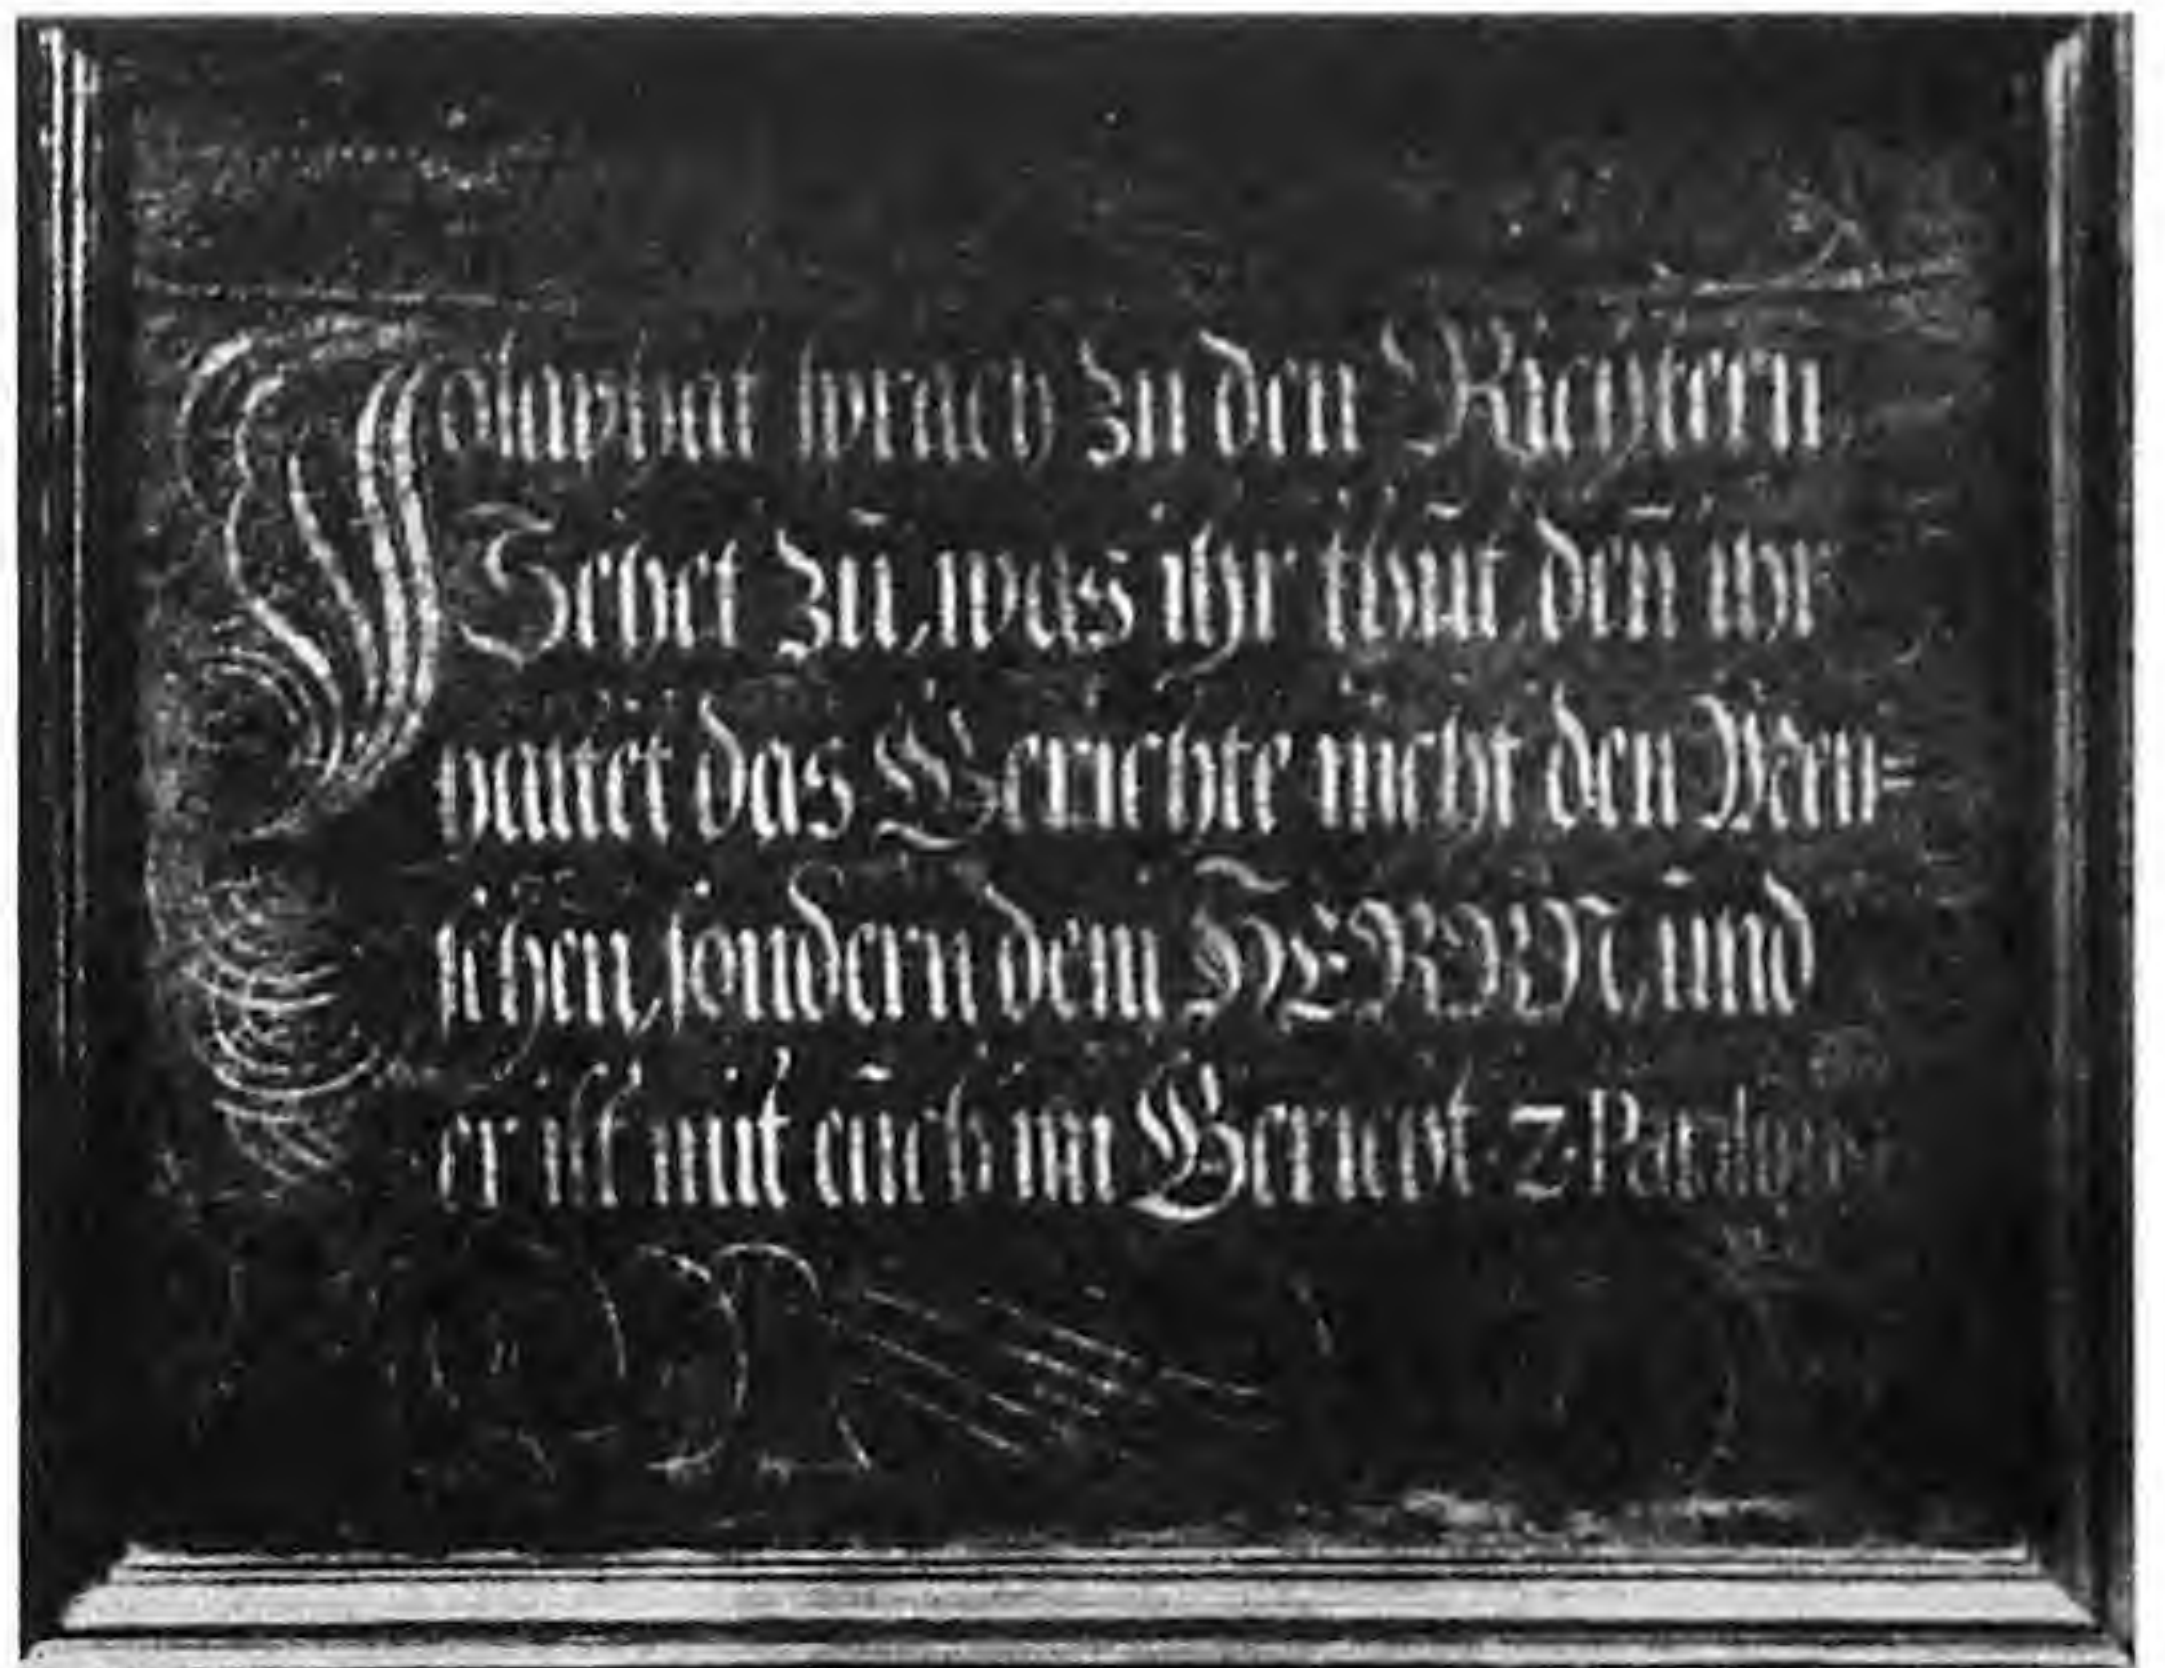 Josaphat sprach zu den Richtern
Sehet zu, was ihr thut, den̄ ihr
haltet das Gerichte nicht den Men=
schen, sondern dem HERRN, und
er ist mit euch im Gericht. 2. Paralip